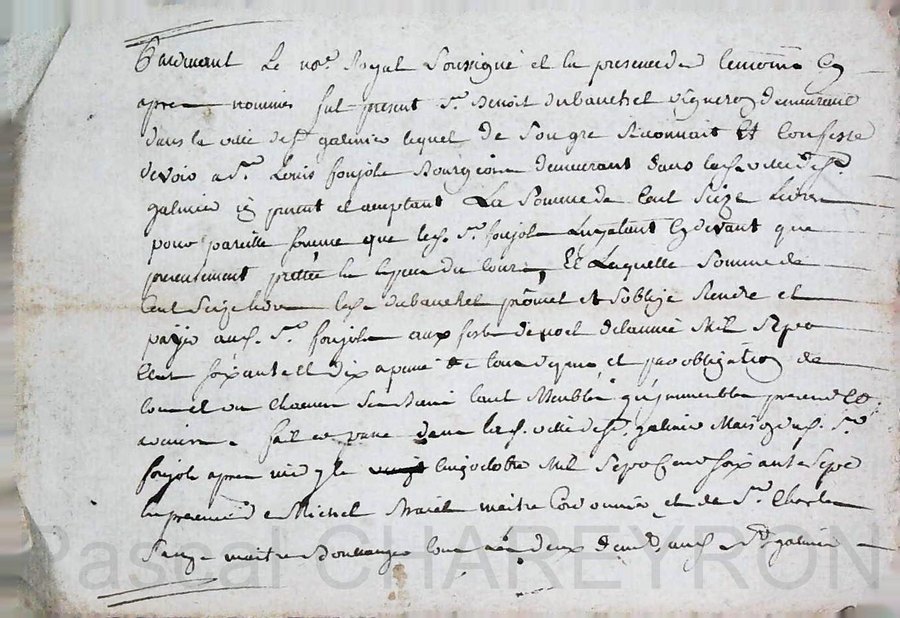 Pardevant Le no.re Royal Soussigné et En presence des temoins Cy
apres nommés fut present S.r Benoit dubouchel vigneron demeurant
dans la ville de S.t galmier lequel de Son gre Reconnait Et Confesse
devoir a S.r Louis foujols Bourgeois demeurant dans lad. ville de S.t
galmier icy present et acceptant La Somme de Cent Seize Livres
pour pareille Somme que led. S.r foujols Luy a Cy devant
prettée En Especes du Cours, Et Laquelle Somme de
Cent Seize livres led. dubouchel promet et S'oblige Rendre et
payer aud. S.r foujols aux festes de noel de l'année Mil Sept
Cent Soixante et dix a peine de tous depens, et par obligation de
tous et un Chacun Ses biens tant Meubles qu'immeubles presents Et
avenirs. fait et passé dans lad. ville de S.t galmier Maison dud. S.r
foujols apres midy le cinq octobre Mil Sept Cent Soixante Sept
En presence de Michel maitre Cordonnier et de S.r Charles
maitre Boulanger tous deux dem.t aud. S.t galmier
Pascal CHAREYRON